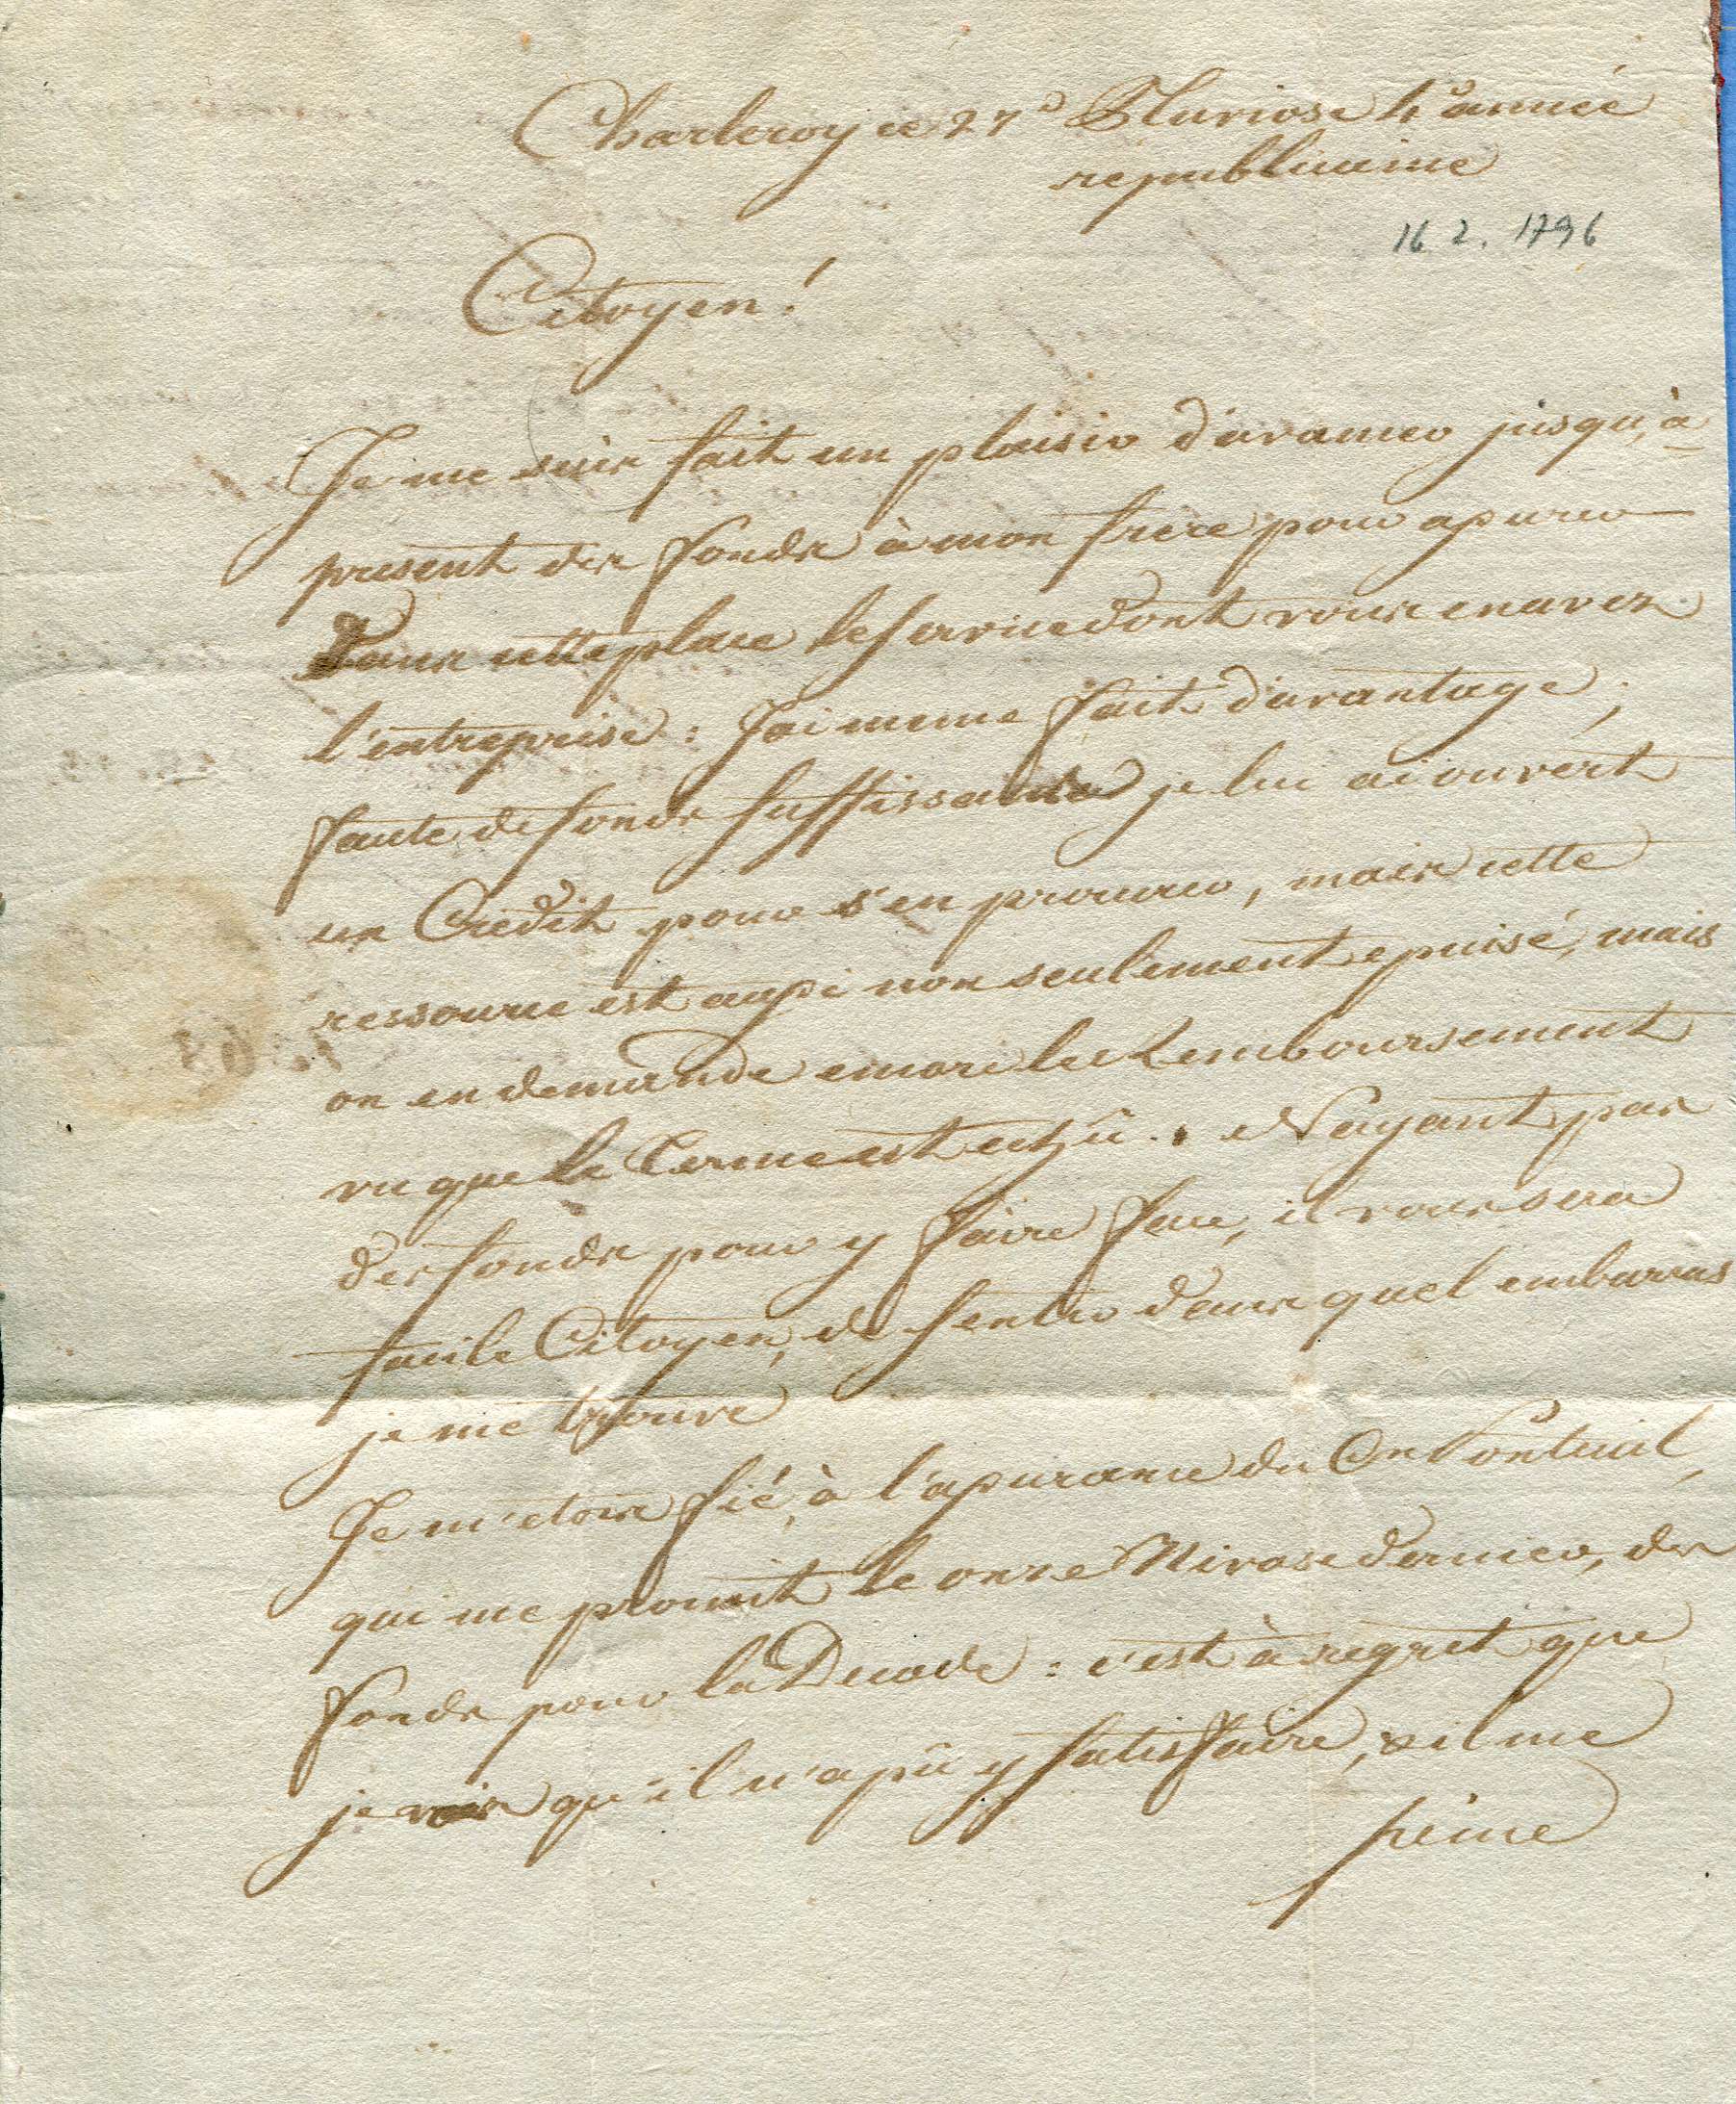 Charleroy ce 27e Pluviose 4e année
republicaine
16 2. 1796
Citoyen!
Je me suis fait un plaisir d'avancer jusqu'à
present des fonds à mon frère pour apurer
dans cette place le service dont vous en avez
l'entreprise : J'ai meme fait d'avantage ;
faute de fonds suffissants je lui ai ouvert
un Credit pour s'en procurer, mais cette
ressource est aussi non seulement epuisé, mais
on en demande encore le Remboursement
vu que le Terme est echû. N'ayant pas
des fonds pour y faire face, il vous sera
facile Citoyen, de sentir dans quel embarras
je me trouve
Je m'etois fié, à l'assurance du Cn Ponteuil,
qui me promit le onze Nivose dernier, des
fonds pour la Decade : c'est à regret que
je vois qu'il n'a pû y satisfaire, & il me
peine